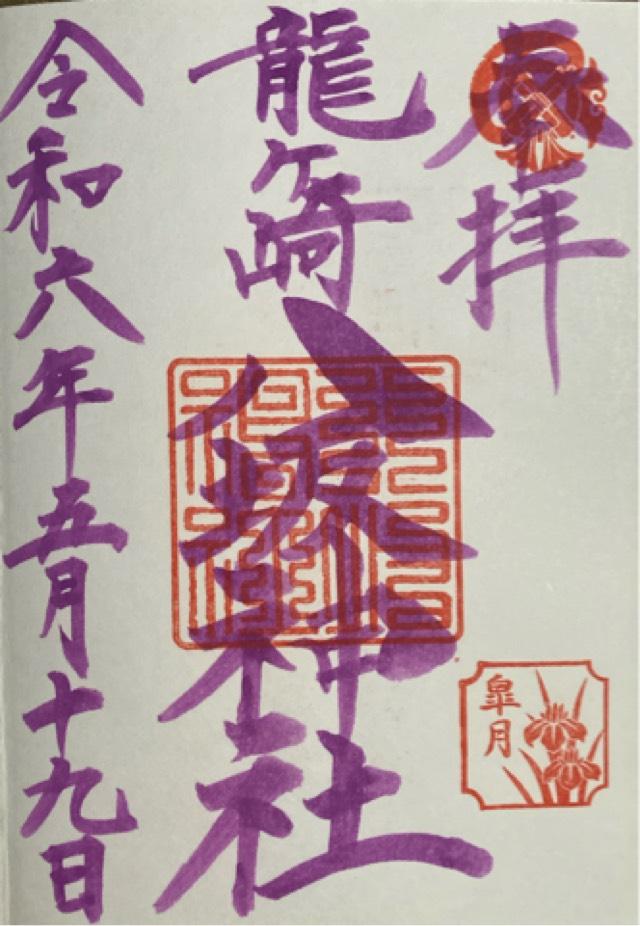 奉拝
龍ケ崎
八坂神社
皐月
令和六年五月十九日